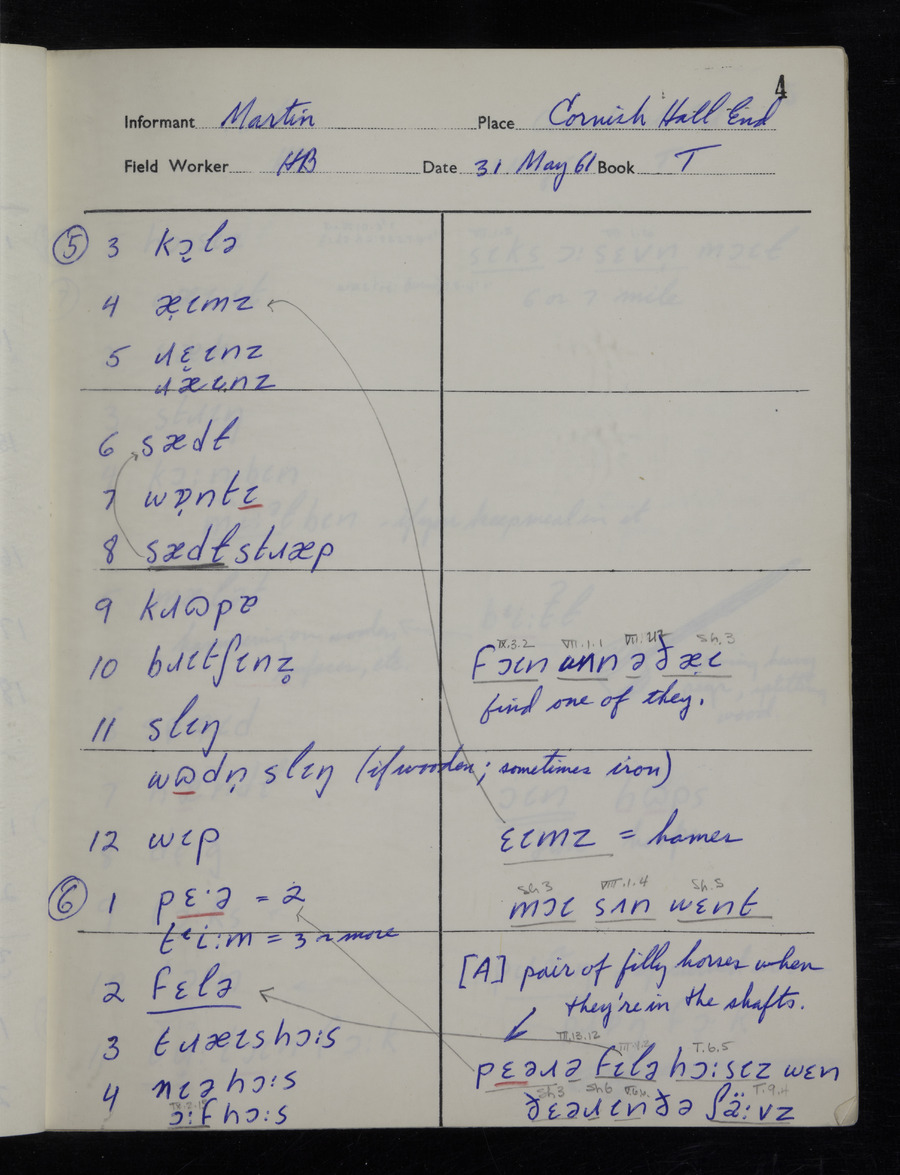 4
Informant Martin Place Cornish Hall End
Field Worker HB Date 31 May 61 Book T
⑤ 3 kə̠lə
4 æ̣ɪmz
5 ɹɛ̣ɪnz
ɹæɪnz
6 sædɫ
7 wɒ̣ntɪ
8 sædɫstɹæp
9 kɹɷpə
10 bɹɪtʃɪnz̥
IX.3.2 VII.1.1 Sh.3
fɔɪn ʌnn ə ðæ̣ɪ
find one of they.
11 slɪŋ
wɷdṇ slɪŋ (if wooden; sometimes iron)
12 wɪp
ɛɪmz = hames
⑥ 1 pɛ·ə = 2
Sh3 VIII.1.4 Sh.5
mɔɪ sʌn wɛnt
tᵊi:m = 3 or more
[A] pair of filly horses when
they're in the shafts.
2 fɛlə
3 tɹæɪshɔ:s
III.13.12 T.6.5
pɛəɹə fɛlə hɔ:sɪz wɛn
4 nɪəhɔ:s
Sh3 Sh6 T.9.4
ðɛəɹɪnðə ʃä:vz
ɔ:fhɔ:s